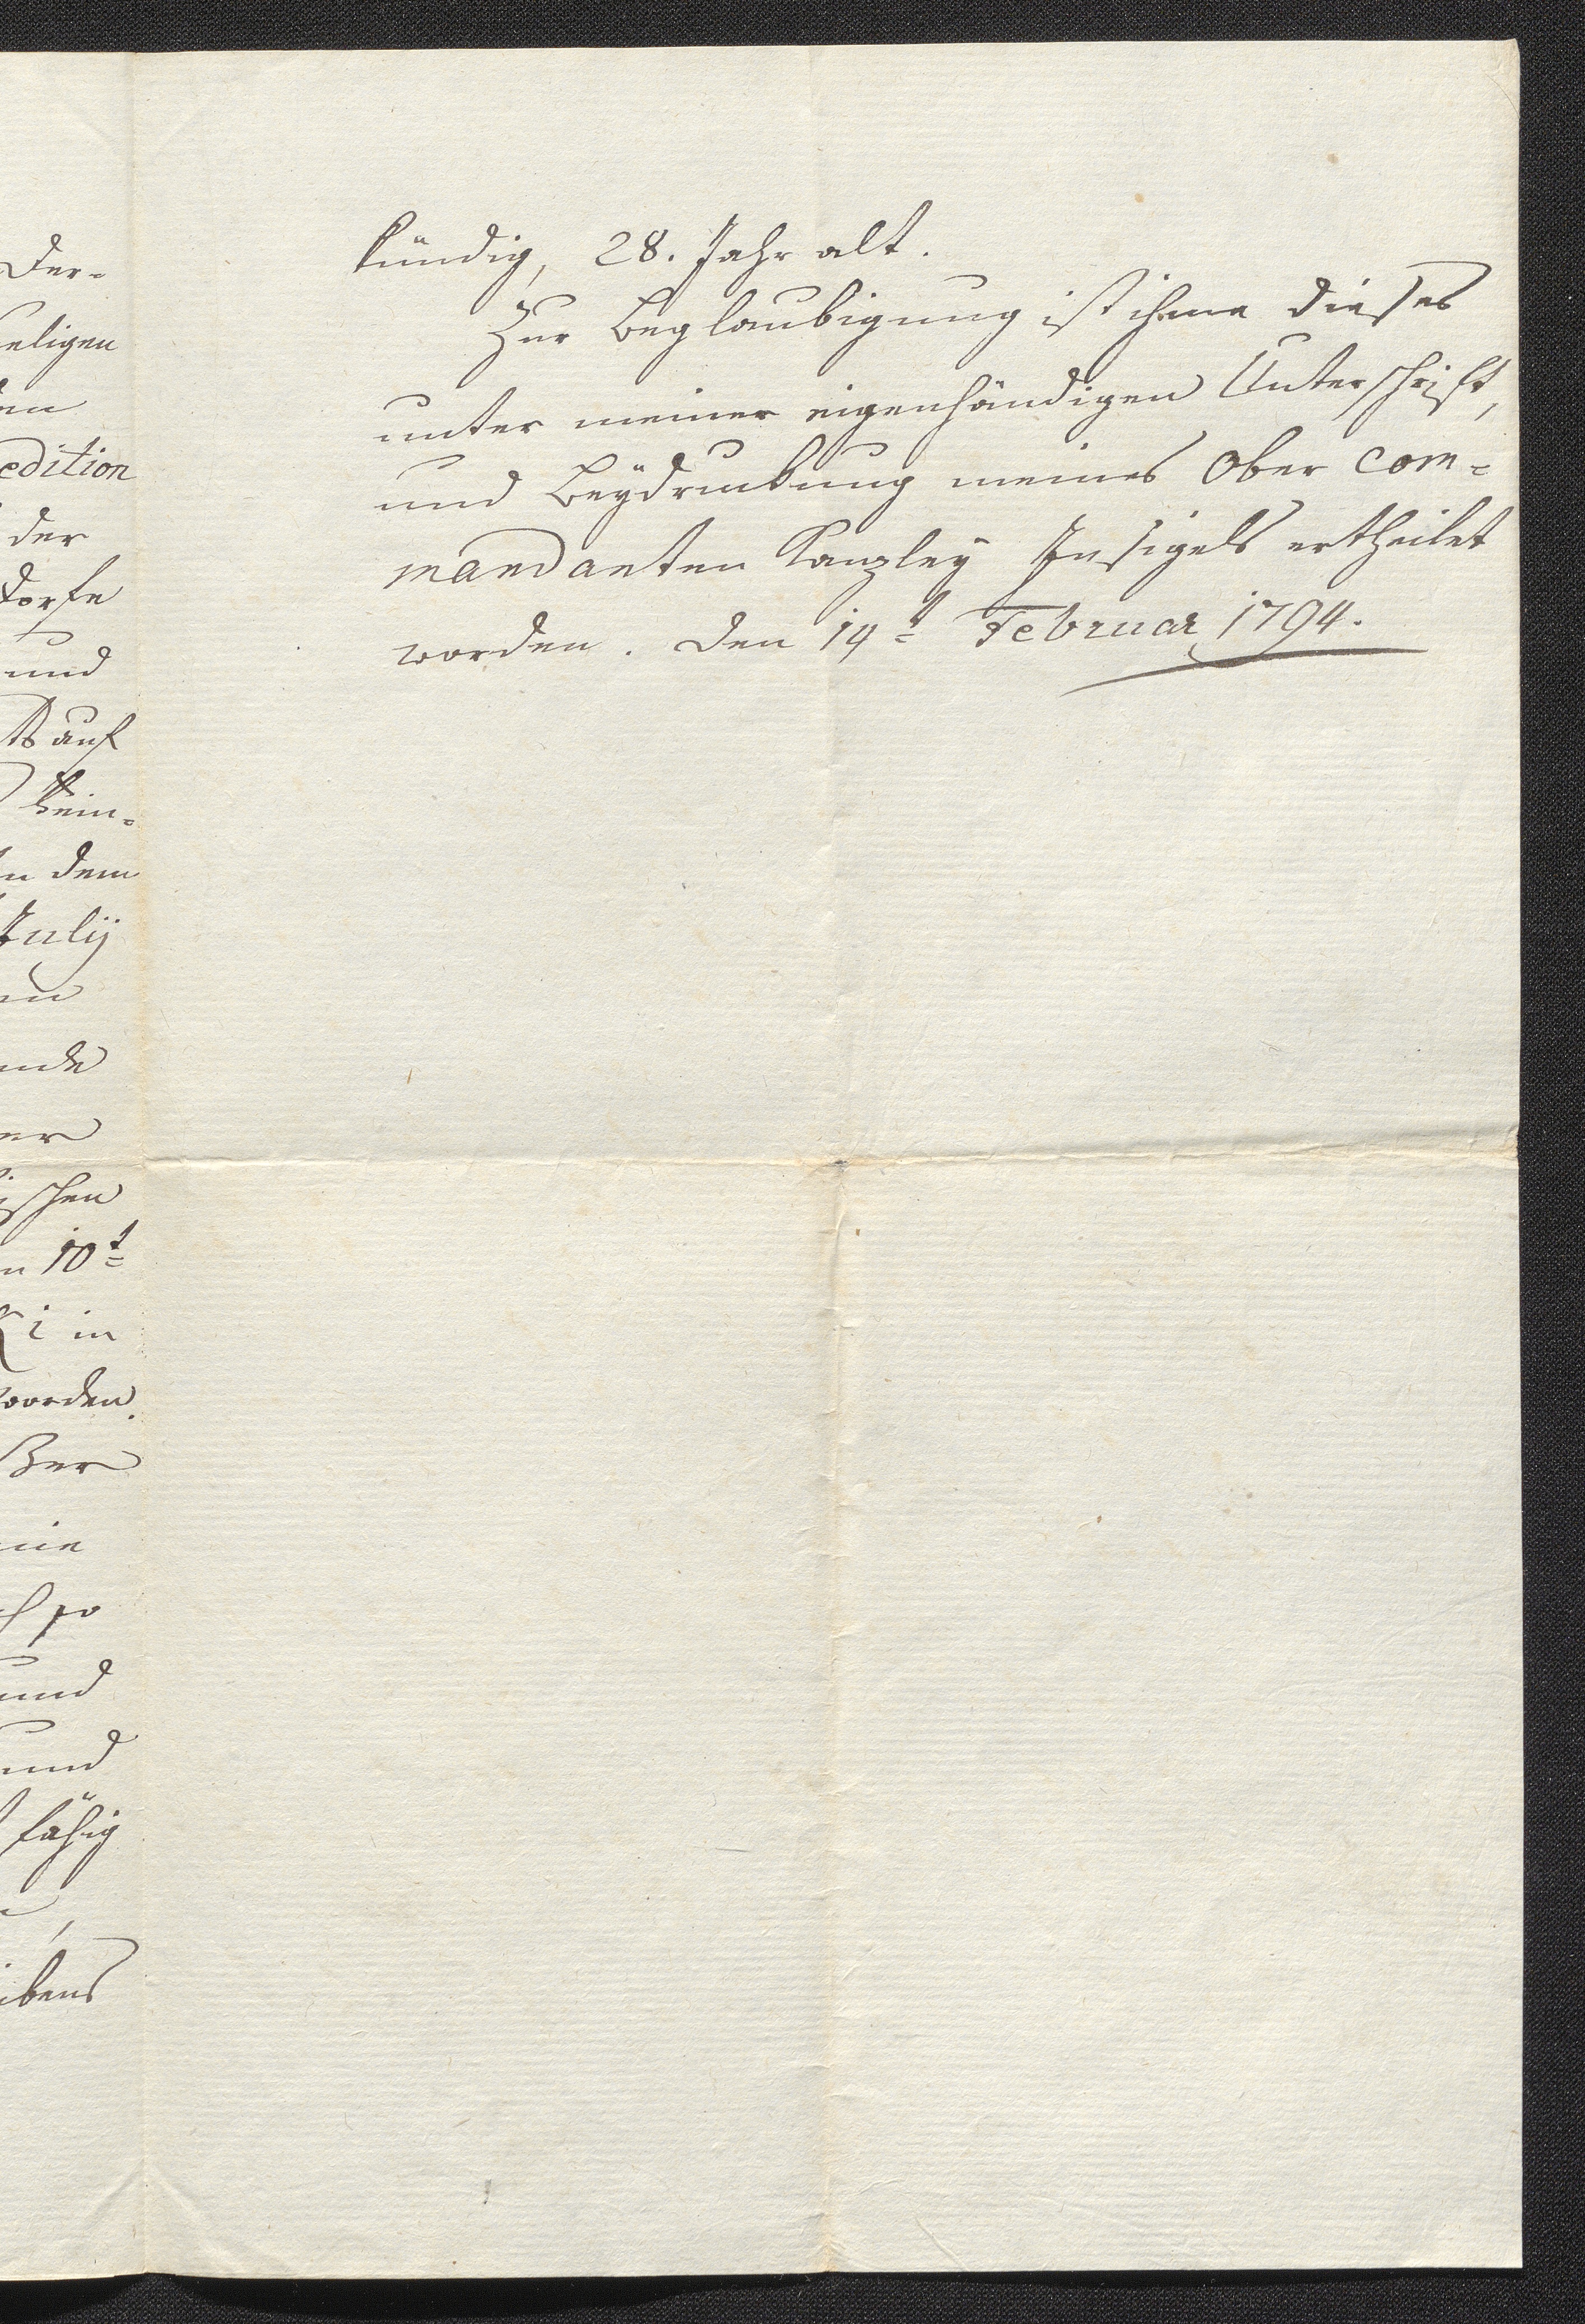 Der-
seligen
en
edition
der
dorfe
und
auf
kein-
n dem
Julij
en
nde
er
ischen
n 10t
ki in
worden.
Ber
nie
so
und
und
fähig
ibens
kündig, 28. Jahr alt.
Zur Beglaubigung ist ihme dieses
unter meiner eigenhändigen Unterschrift,
und Beÿdruckung meines Ober com=
mandanten Kanzleÿ Insigels ertheilet
worden. Den 14t Februar 1794.